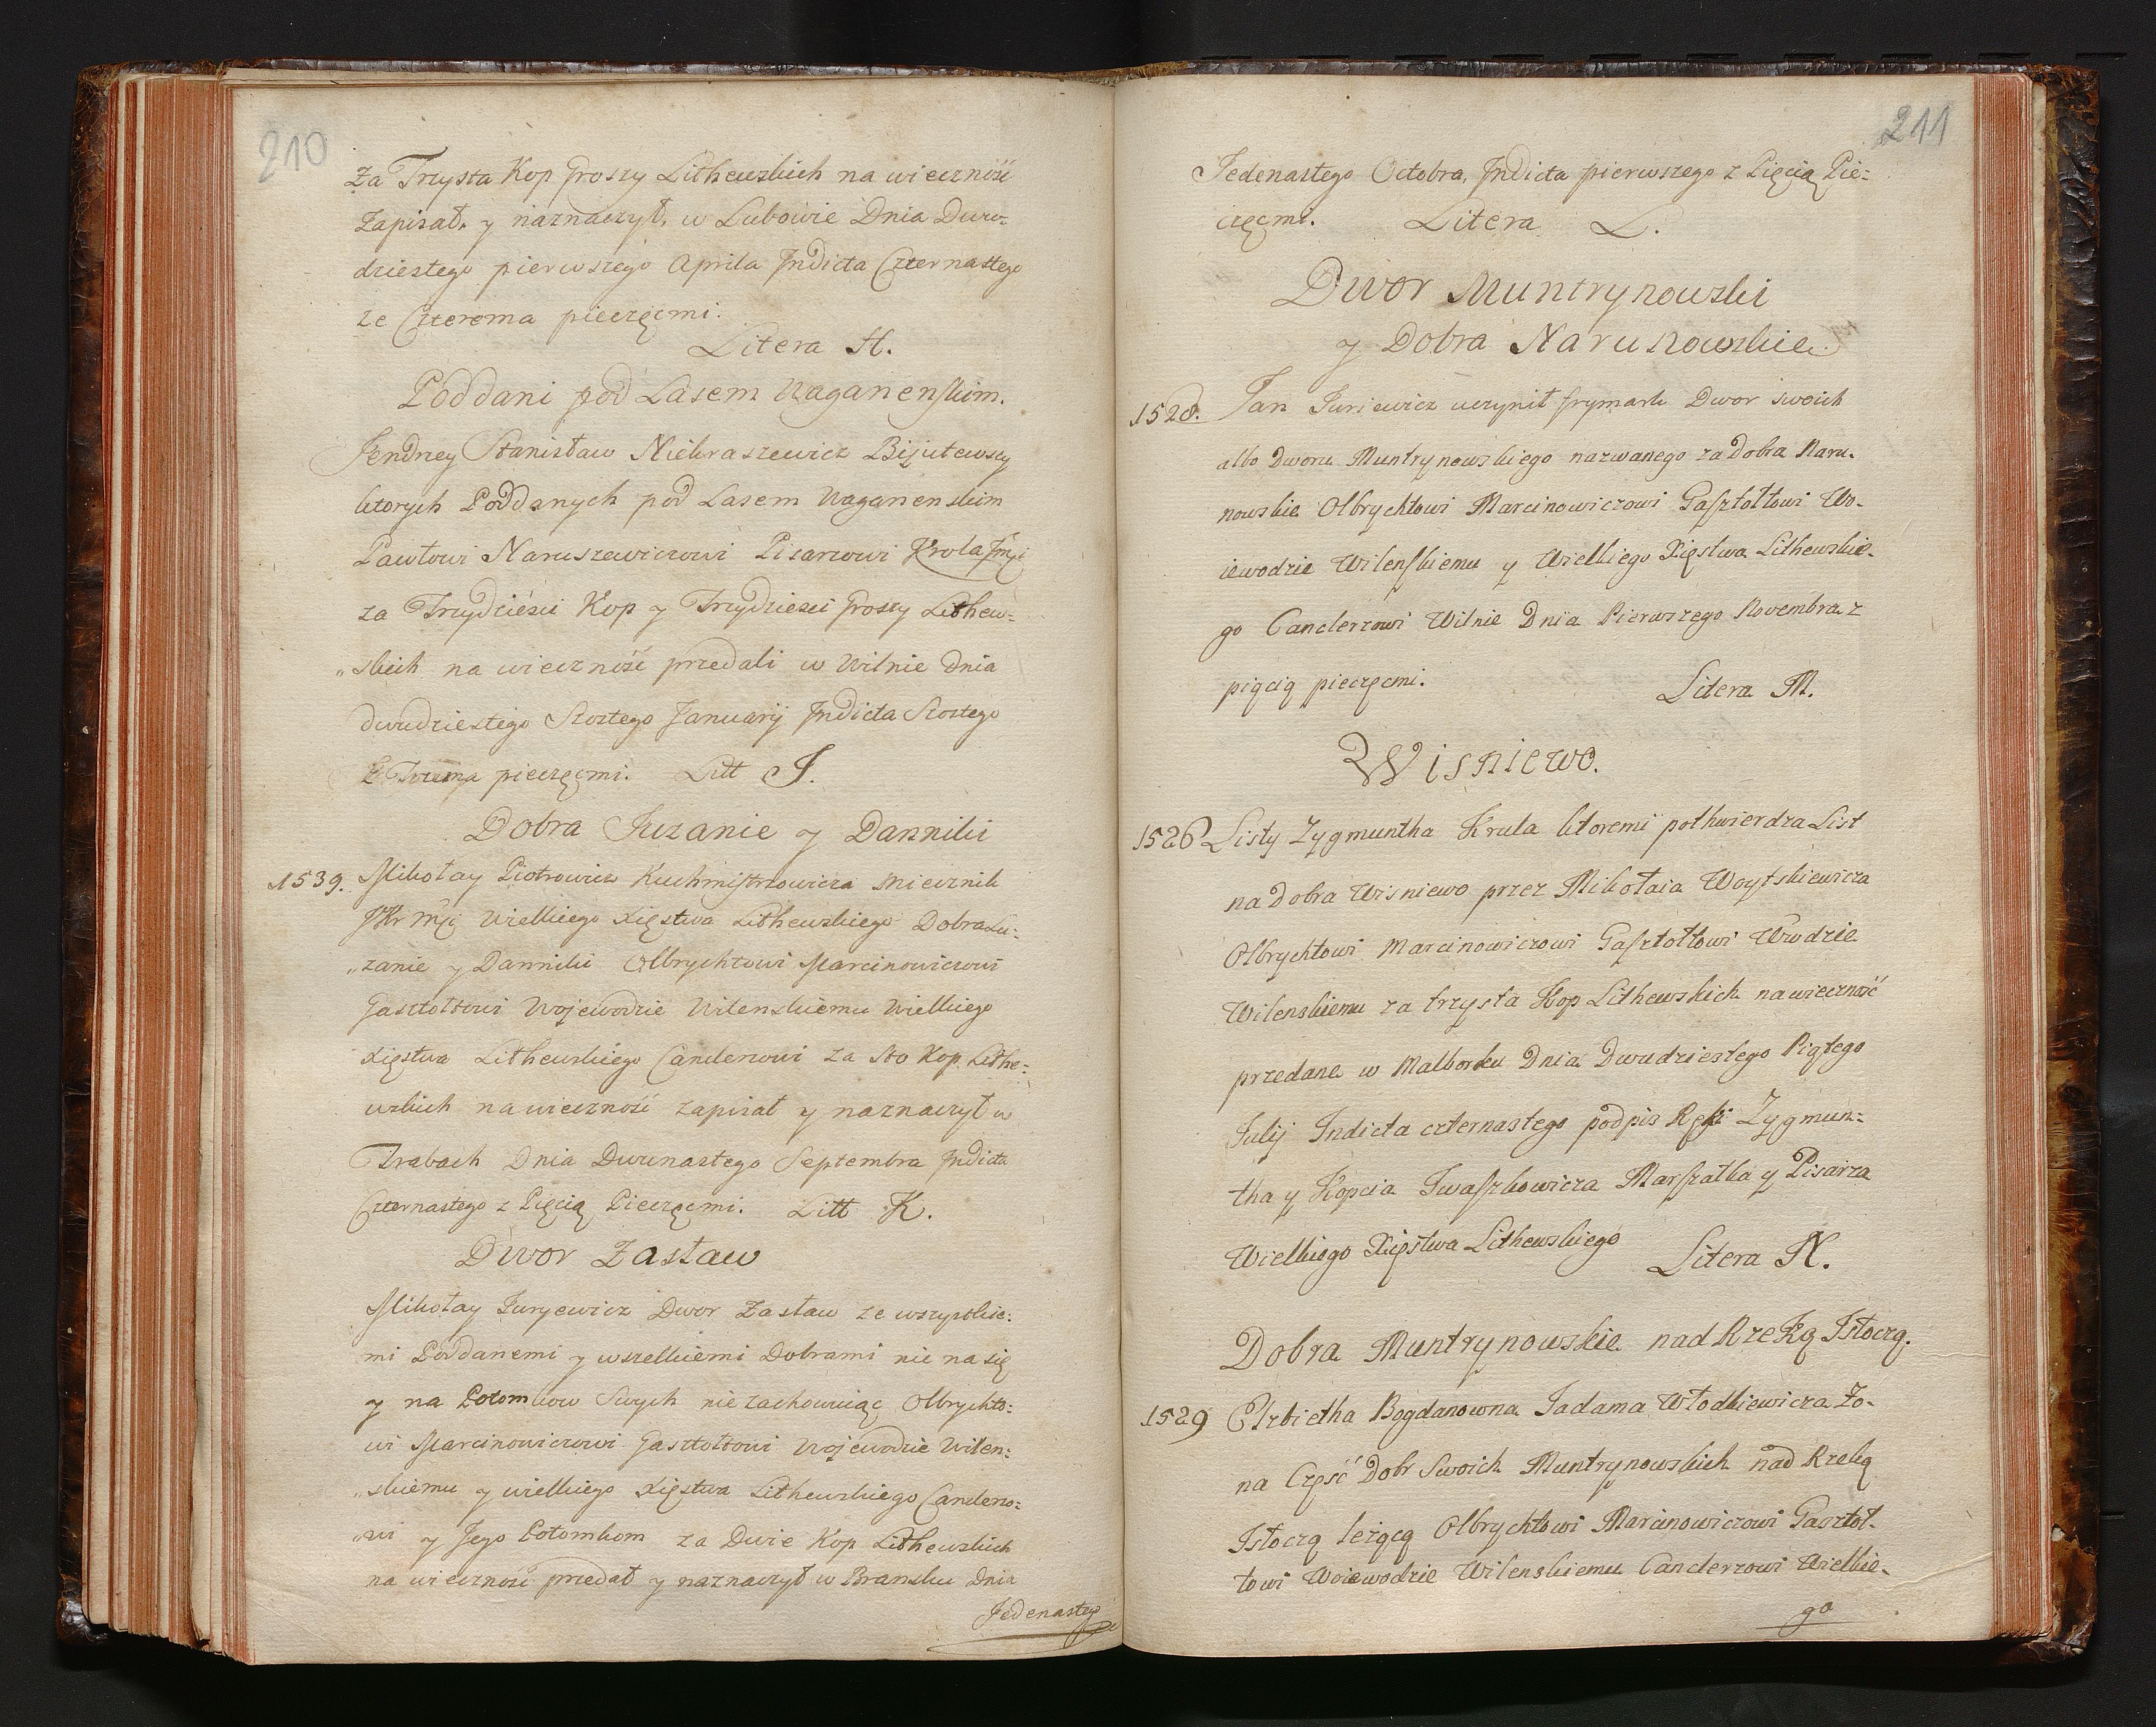 210
Za Trzysta Kop Groszy Lithewskich na wieczność
Zapisał. y naznaczył, w Lubowie Dnia Dwu=
dziestego pierwszego Aprila Indicta Czternastego
ze Czterema pieczęcmi.
Litera H.
Poddani pod Lasem Uaganenskim.
Jendrzey Stanisław Niekraszewicz Bijutewscy
ktorych Poddanych pod Lasem Uaganenskim
Pawłowi Naruszewiczowi Pisarzowi Krola Jmci
za Trzydziesci Kop y Trzydziesci Groszy Lithew=
„skich na wieczność przedali w Wilnie Dnia
dwudziestego Szostego Januarij Indicta Szostego
z Trzema pieczęcmi. Litt J.
Dobra Luzanie y Dannilii
1539. Mikołay Piotrowicz Kuchmistrzowicza Miecznik
JKr Mci Wielkiego Xięstwa Lithewskiego Dobra Lu=
„zanie y Dannilii Olbrychtowi Marcinowiczowi
Gasztołtowi Wojewodzie Wilenskiemu Wielkiego
Xięstwa Lithewskiego Canclerzowi za sto Kop Lithe=
wskich na wieczność zapisał y naznaczył w
Trabach Dnia Dwunastego Septembra Indicta
Czternastego z Pięcią Pieczęcmi. Litt K.
Dwor Zastaw
Mikołay Juryewicz Dwor Zastaw ze wszystkie=
mi Poddanemi y wszelkiemi Dobrami nie na się
y na Potomkow Swych nie zachowuiąc Olbrychto=
wi Marcinowiczowi Gasztołtowi Wojewodzie Wilen=
„skiemu y wielkiego Xięstwa Lithewskiego Canclerzo=
„wi y Jego Potomkom za Dwie Kop Lithewskich
na wieczność przedał y naznaczył w Bransku Dnia
Jedenastego
211
Jedenastego Octobra, Indicta pierwszego z Pięcią Pie=
częcmi. Litera L.
Dwor Muntrynowski
y Dobra Narunowskie
1528. Jan Juriewicz uczynił frymark Dwor swoich
albo Dworu Muntrynowskiego nazwanego za Dobra Naru-
nowskie Olbrychtowi Marcinowiczowi Gasztołtowi Wo-
iewodzie Wilenskiemu y Wielkiego Xięstwa Lithewskie-
go Canclerzowi Wilnie Dnia Pierwszego Novembra z
pięcią pieczęcmi. Litera M.
Wisniewo.
1526 Listy Zygmuntha Krula ktoremi pothwierdza List
na Dobra Wisniewo przez Mikołaia Woytskiewicza
Olbrychtowi Marcinowiczowi Gasztołtowi Wwodzie
Wilenskiemu za trzysta Kop Lithewskich na wieczność
przedane w Malborku Dnia Dwudziestego Piątego
Julij Indicta czternastego podpis Ręki Zygmun=
tha y Kopcia Iwaszkowicza Marszałka y Pisarza
Wielkiego Xięstwa Lithewskiego Litera N.
Dobra Muntrynowskie nad Rzeką Isłoczą.
1529 Elzbietha Bogdanowna Jadama Włodkiewicza Żo-
na Część Dobr Swoich Muntrynowskich nad Rzeką
Isłoczą leżącą Olbrychtowi Marcinowiczowi Gasztoł-
towi Woiewodzie Wilenskiemu Canclerzowi Wielkie-
go